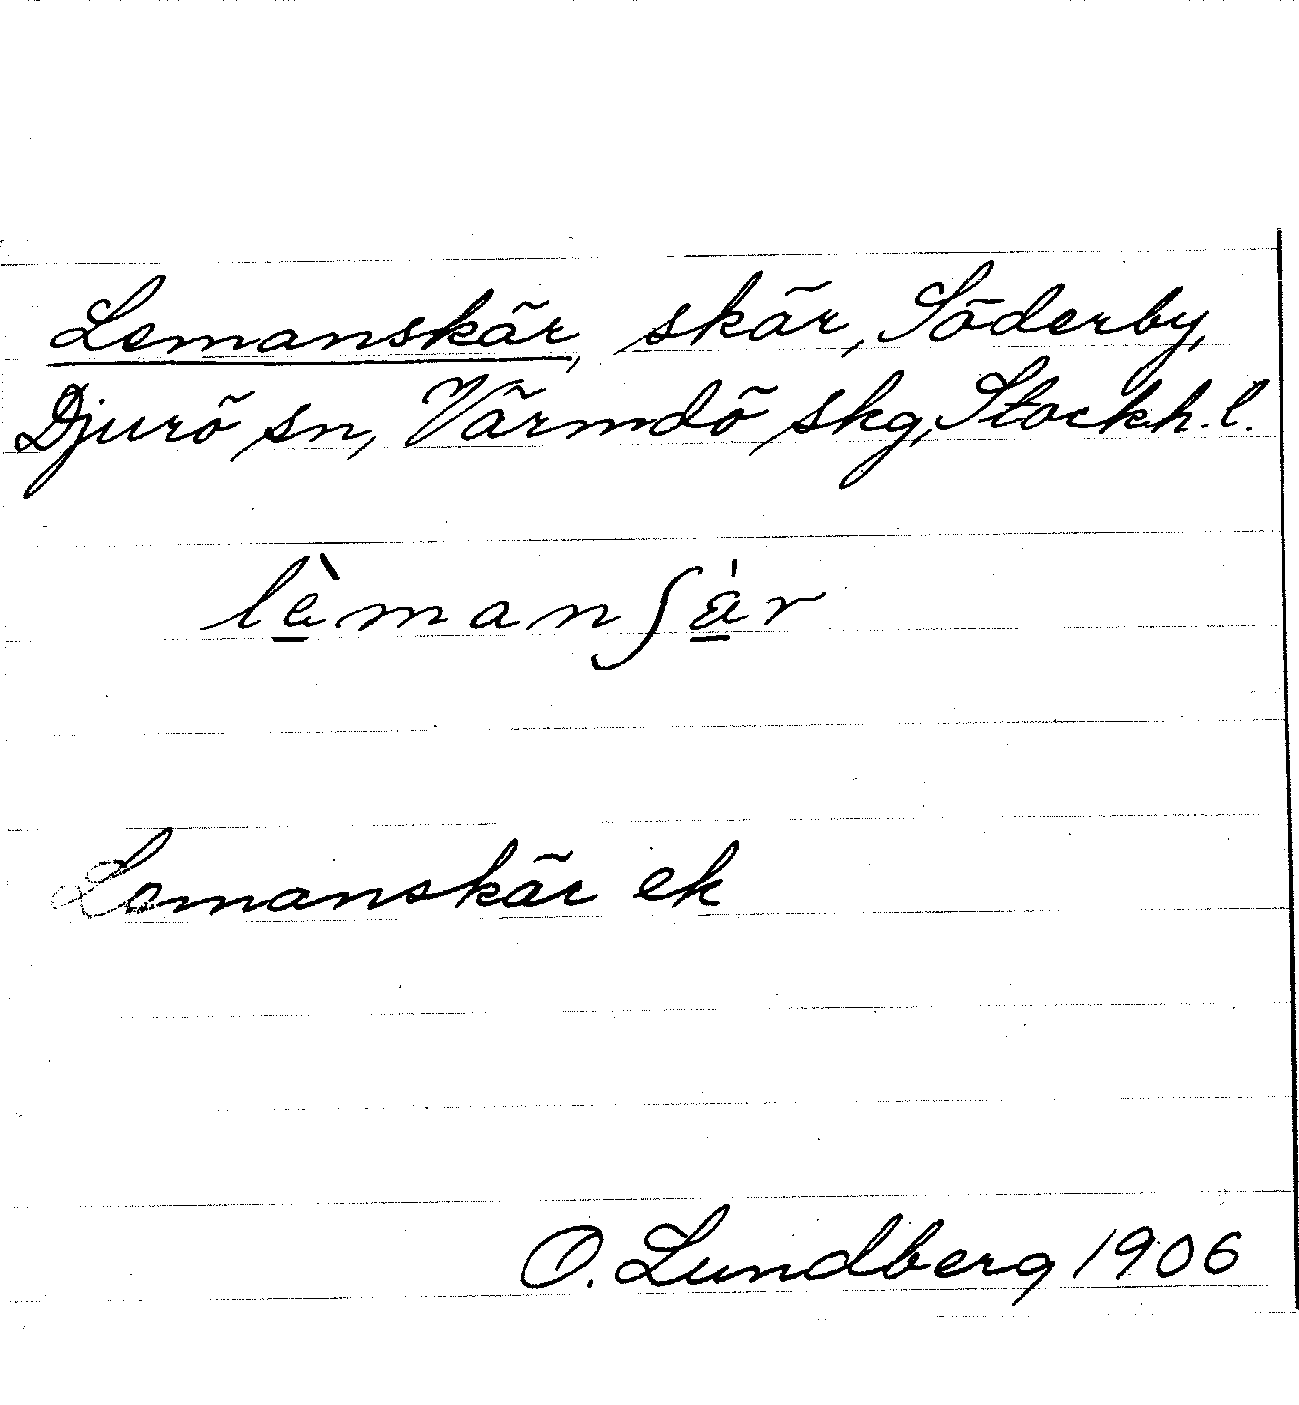 Lemanskär, skär, Söderby,
Djurö sn, Värmdö skg, Stockh.l.
lèmanʃä̀r
Lemanskär ek
O. Lundberg 1906